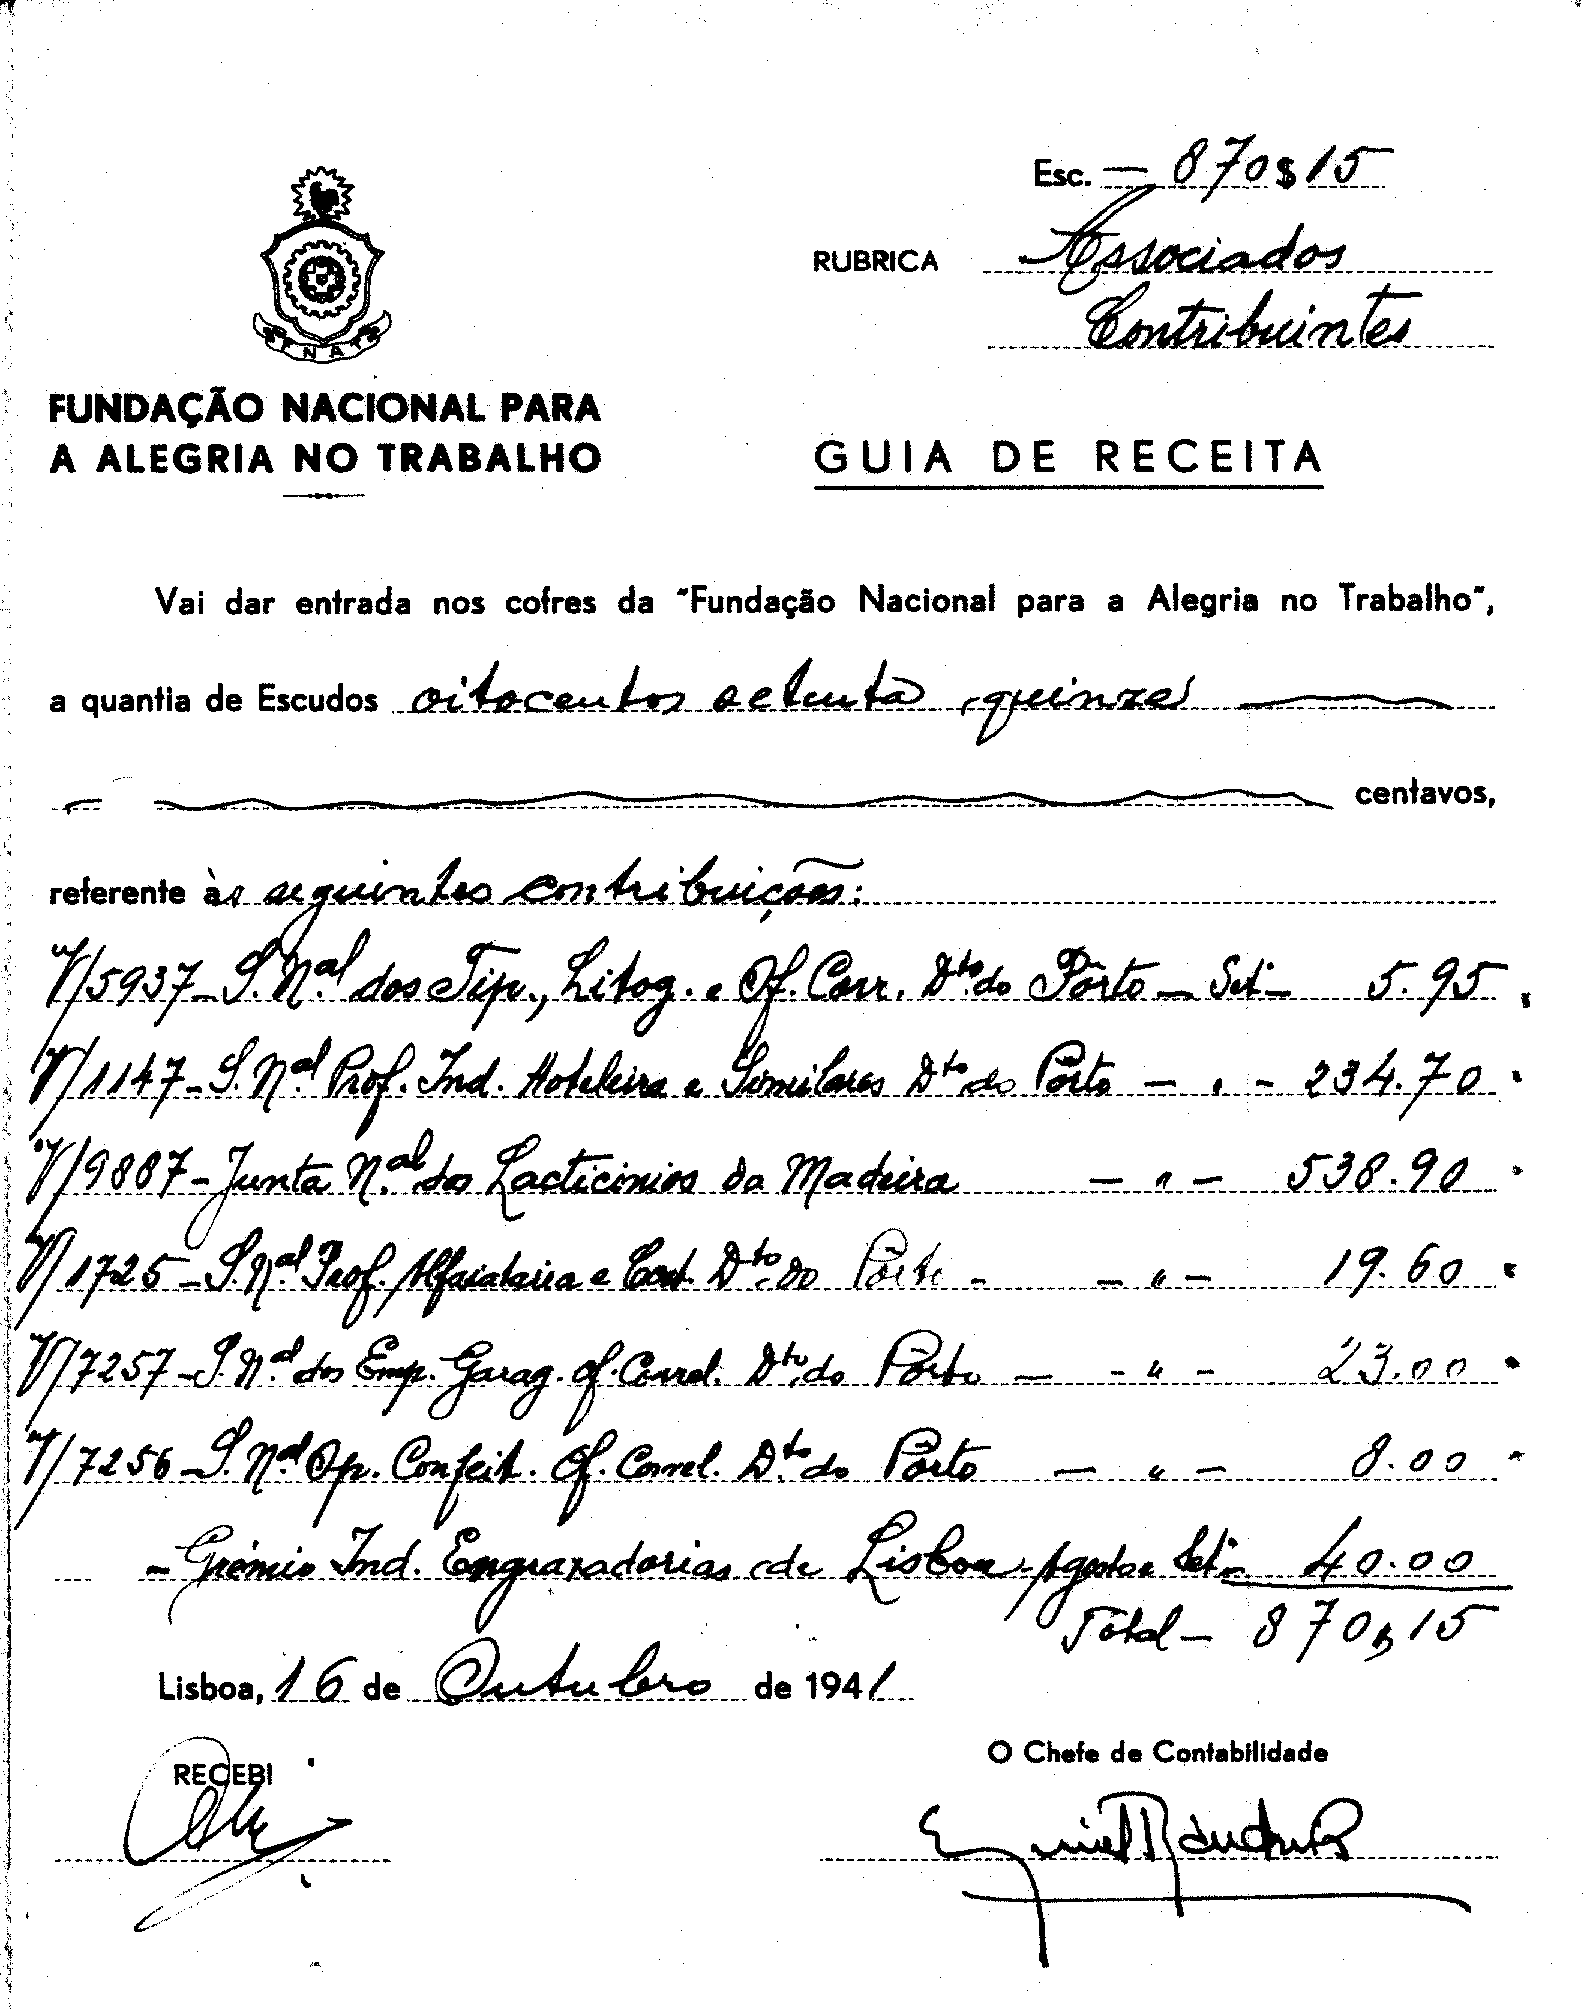 Esc. — 870$15
RUBRICA Associados
Contribuintes
FNAT
FUNDAÇÃO NACIONAL PARA
A ALEGRIA NO TRABALHO
GUIA DE RECEITA
Vai dar entrada nos cofres da "Fundação Nacional para a Alegria no Trabalho",
a quantia de Escudos oitocentos setenta, quinze
centavos,
referente às seguintes contribuições:
V/5937 - S. N.al dos Tip., Litog. e Of. Corr. D.to do Pôrto — Set.- 5.95
V/1147 - S. N.al Prof. Ind. Hoteleira e Similares D.to do Pôrto — " - 234.70
V/9887 - Junta N.al dos Lacticinios da Madeira — " — 538.90
V/1725 - S. N.al Prof. Alfaiataria e Cost. D.to do Pôrto - — " — 19.60
V/7257 - S. N.al dos Emp. Garag. Of. Correl. D.to do Pôrto — - " - 23.00
V/7256 - S. N.al Op. Confeit. Of. Correl. D.to do Pôrto — " — 8.00
- Grémio Ind. Engraxadorias de Lisboa - Agosto e Set.- 40.00
Total - 870$15
Lisboa, 16 de Outubro de 1941
RECEBI
O Chefe de Contabilidade